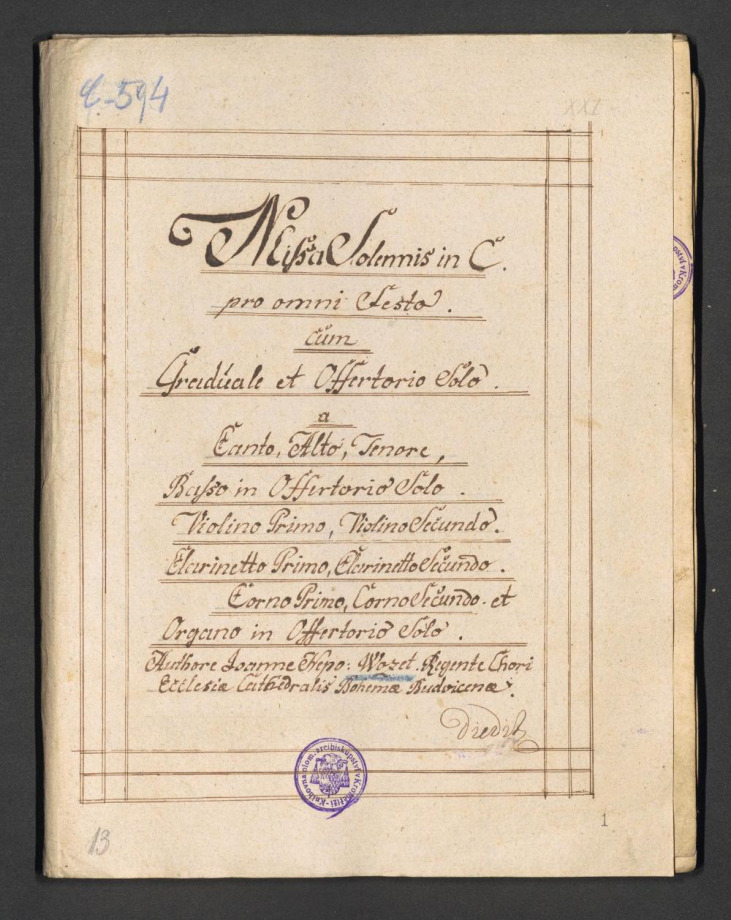 C-594
XXI
Missa Solennis in C.
pro omni Festo.
cum
Graduale et Offertorio Solo.
a
Canto, Alto, Tenore,
Basso in Offertorio Solo.
Violino Primo, Violino Secundo.
Clarinetto Primo, Clarinetto Secundo.
Corno Primo, Corno Secundo. et
Organo in Offertorio Solo.
Authore Joanne Nepo: Wozet. Regente Chori
Ecclesiæ Cathedralis Bohemæ Budvicenæ.
Knihovna plom. arcibiskupství v Kroměříži
13
1